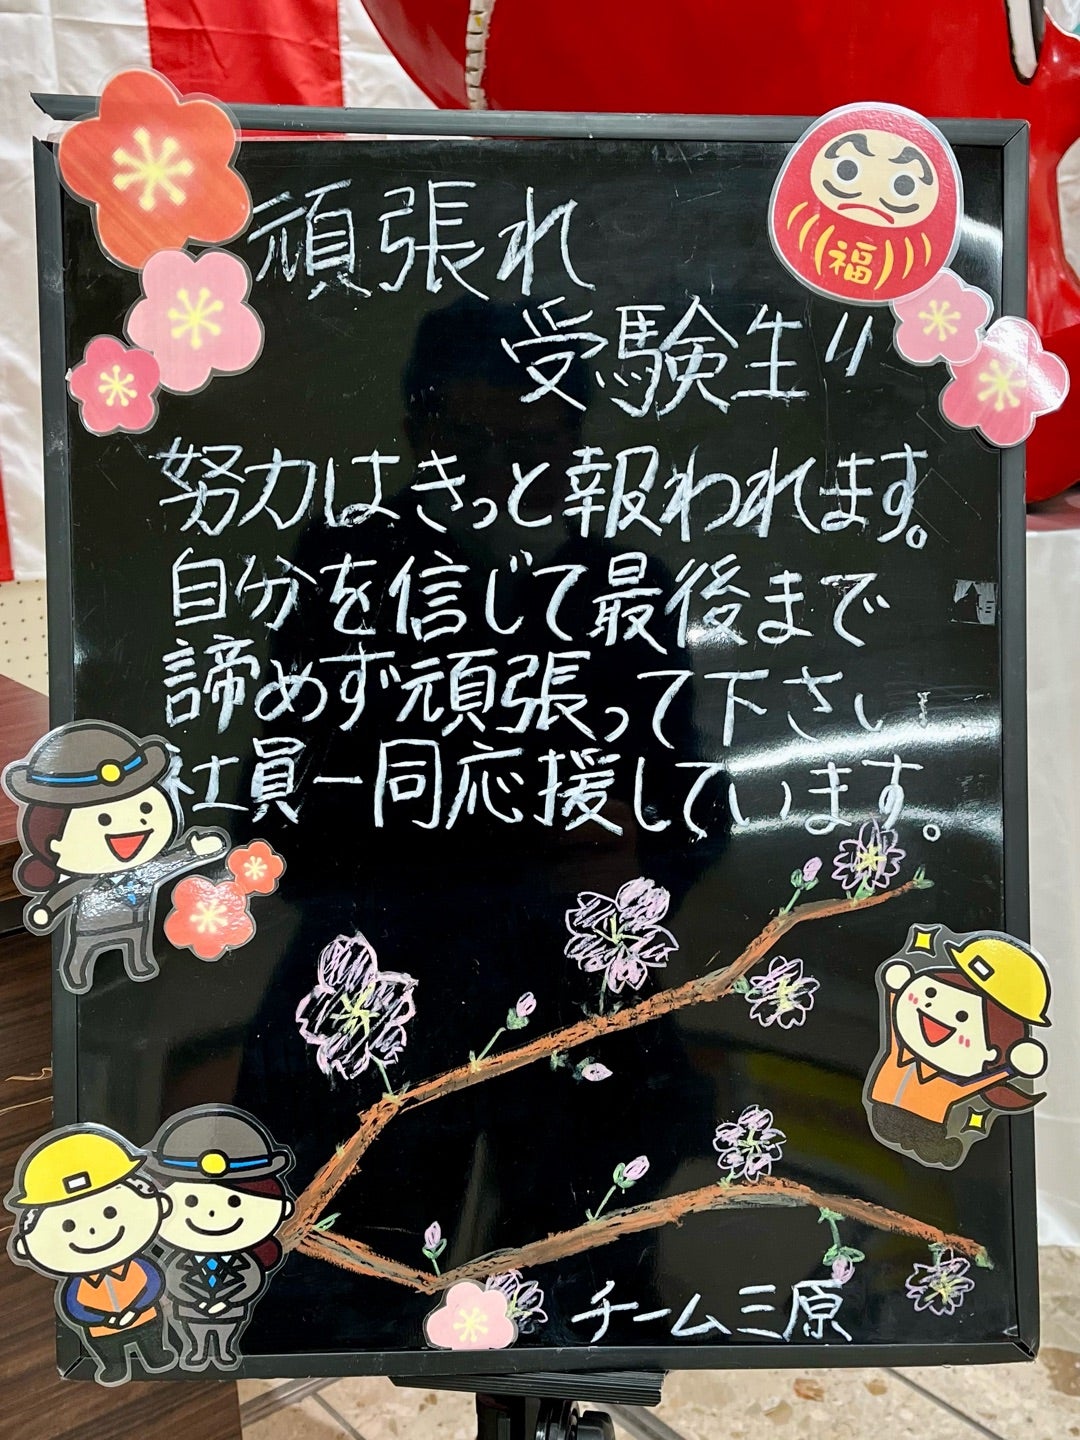 頑張れ
福
受験生!!
努力はきっと報われます。
自分を信じて最後まで
諦めず頑張って下さい
社員一同応援しています。
チーム三原